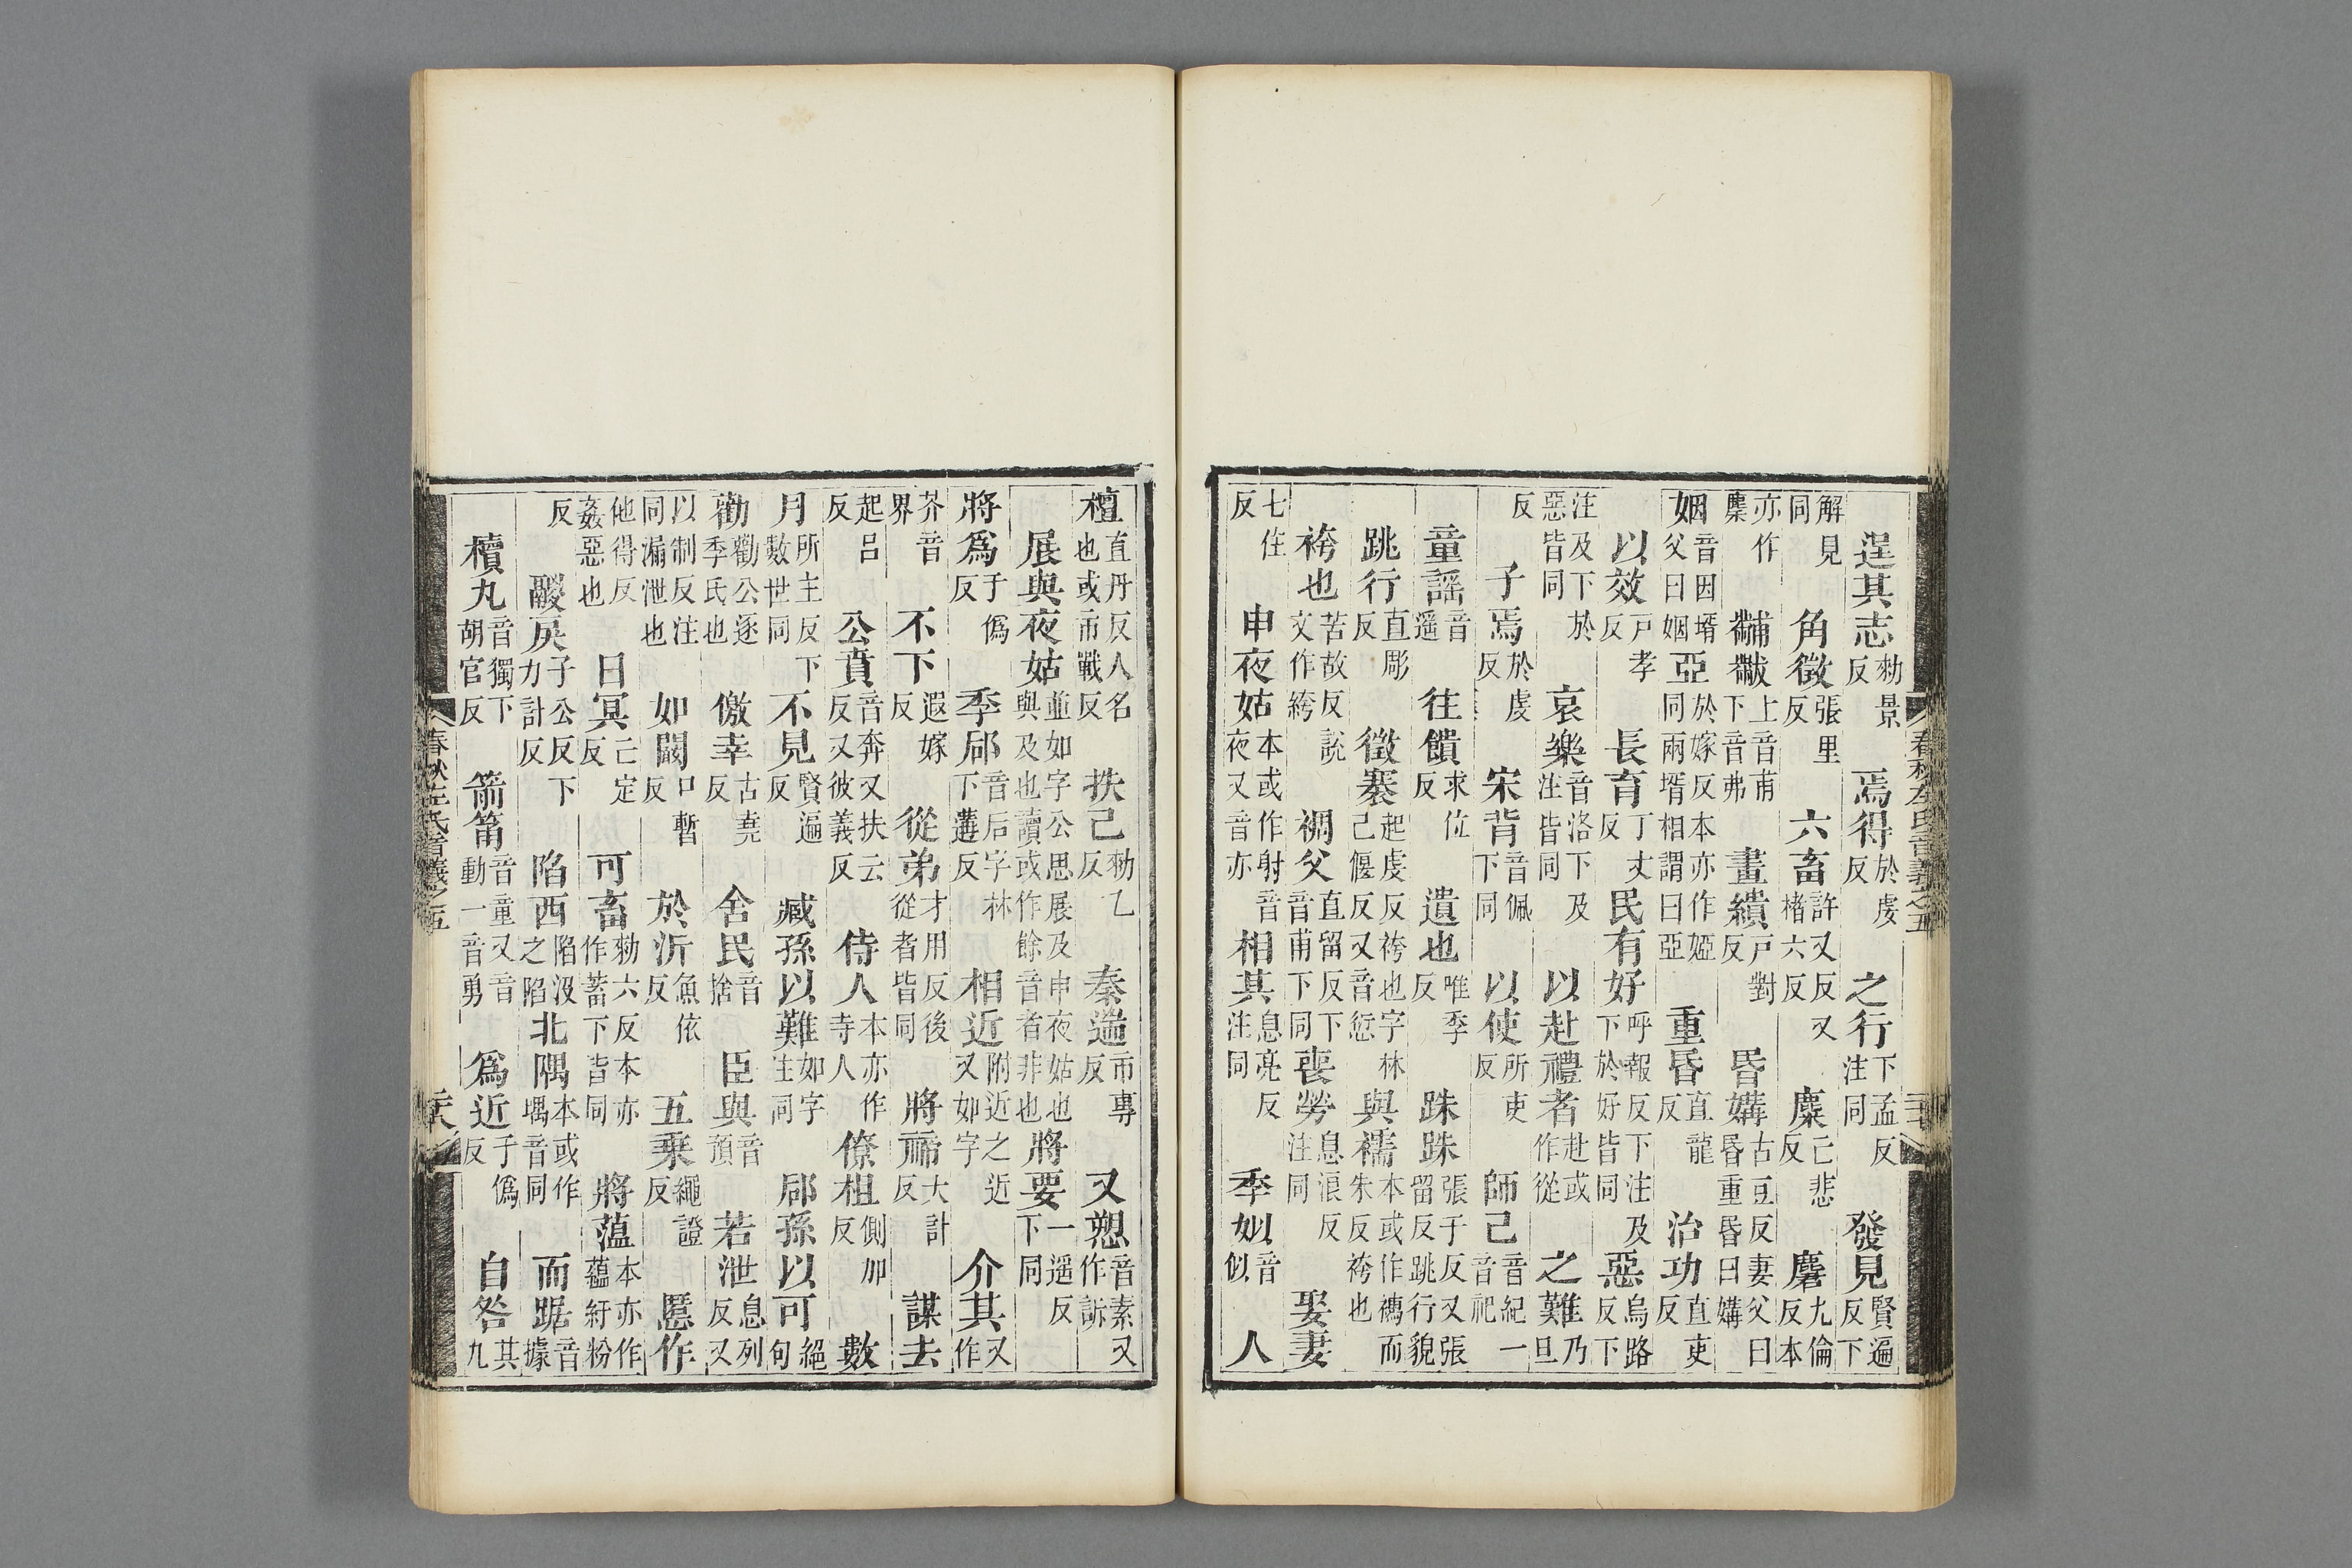 逞其志勑景反焉得於虔反之行下孟反注同發見賢遍反下
解見同角徵張里反六畜許又反又楮六反麋亡悲反麏九倫反本
亦作麇黼黻上音甫下音弗畫繢戶對反昏媾古豆反妻父曰昏重昏曰媾
姻音因壻父曰姻亞於嫁反本亦作婭同兩壻相謂曰亞重昏直龍反治功直吏反
以效戶孝反長育丁丈反民有好呼報反下注及下於好皆同惡烏路反下
注及下於惡皆同哀樂音洛下及注皆同以赴禮者赴或作從之難乃旦
反子焉於虔反宋背音佩下同以使所吏反師己音紀一音祀
童謡音遥往饋求位反遺也唯季反跦跦張于反又張留反跳行貌
跳行直彫反徵褰起虔反袴也字林己偃反又音愆與襦本或作襦而朱反袴也
袴也苦故反說文作絝禂父直留反下音甫下同喪勞息浪反注同娶妻
七住反申夜姑本或作射音夜又音亦相其息亮反注同季姒音似人
春秋左氏音義之五
檀直丹反人名也或市戰反抶己勑乙反秦遄市專反又愬音素又作訴
展與夜姑並如字公思展及申夜姑也與及也讀或作餘音者非也將要一遥反下同
將爲于僞反季郈音后字林下遘反相近附近之近又如字介其又作
芥音界不下遐嫁反從弟才用反後從者皆同將禘大計反謀去
起呂反公賁音奔又扶云反又彼義反侍人本亦作寺人僚柤側加反數
月所主反下數世同不見賢遍反臧孫以難如字注同郈孫以可絕句
勸勸公逐季氏也儌幸古堯反舍民音捨臣與音預若泄息列反又
以制反注同漏泄也如闞口暫反於沂魚依反五乘繩證反慝作
他得反姦惡也日冥亡定反可畜勑六反本亦作蓄下皆同將薀本亦作蘊紆粉
反鬷戾子公反下力計反陷西陷沒之陷北隅本或作堣音同而踞音據
櫝丸音獨下胡官反箭筩音童又音動一音勇爲近于僞反自咎其九
春秋左氏音義之五